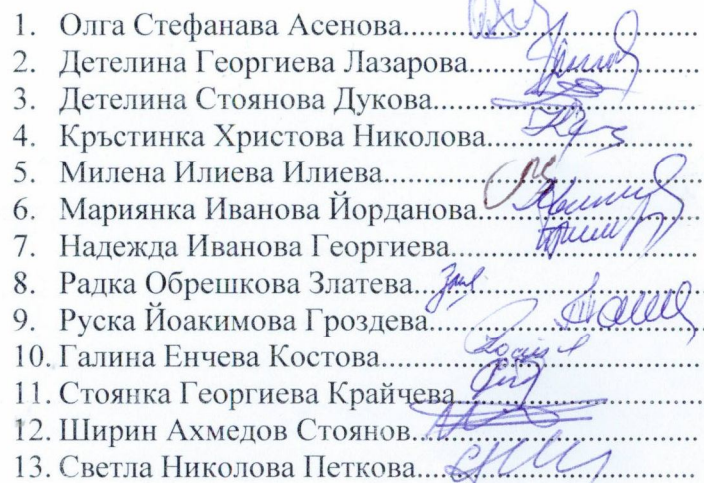 1. Олга Стефанава Асенова....................................
2. Детелина Георгиева Лазарова............................
3. Детелина Стоянова Дукова................................
4. Кръстинка Христова Николова..........................
5. Милена Илиева Илиева......................................
6. Мариянка Иванова Йорданова..........................
7. Надежда Иванова Георгиева..............................
8. Радка Обрешкова Златева..................................
9. Руска Йоакимова Гроздева.................................
10. Галина Енчева Костова......................................
11. Стоянка Георгиева Крайчева.............................
12. Ширин Ахмедов Стоянов..................................
13. Светла Николова Петкова..................................